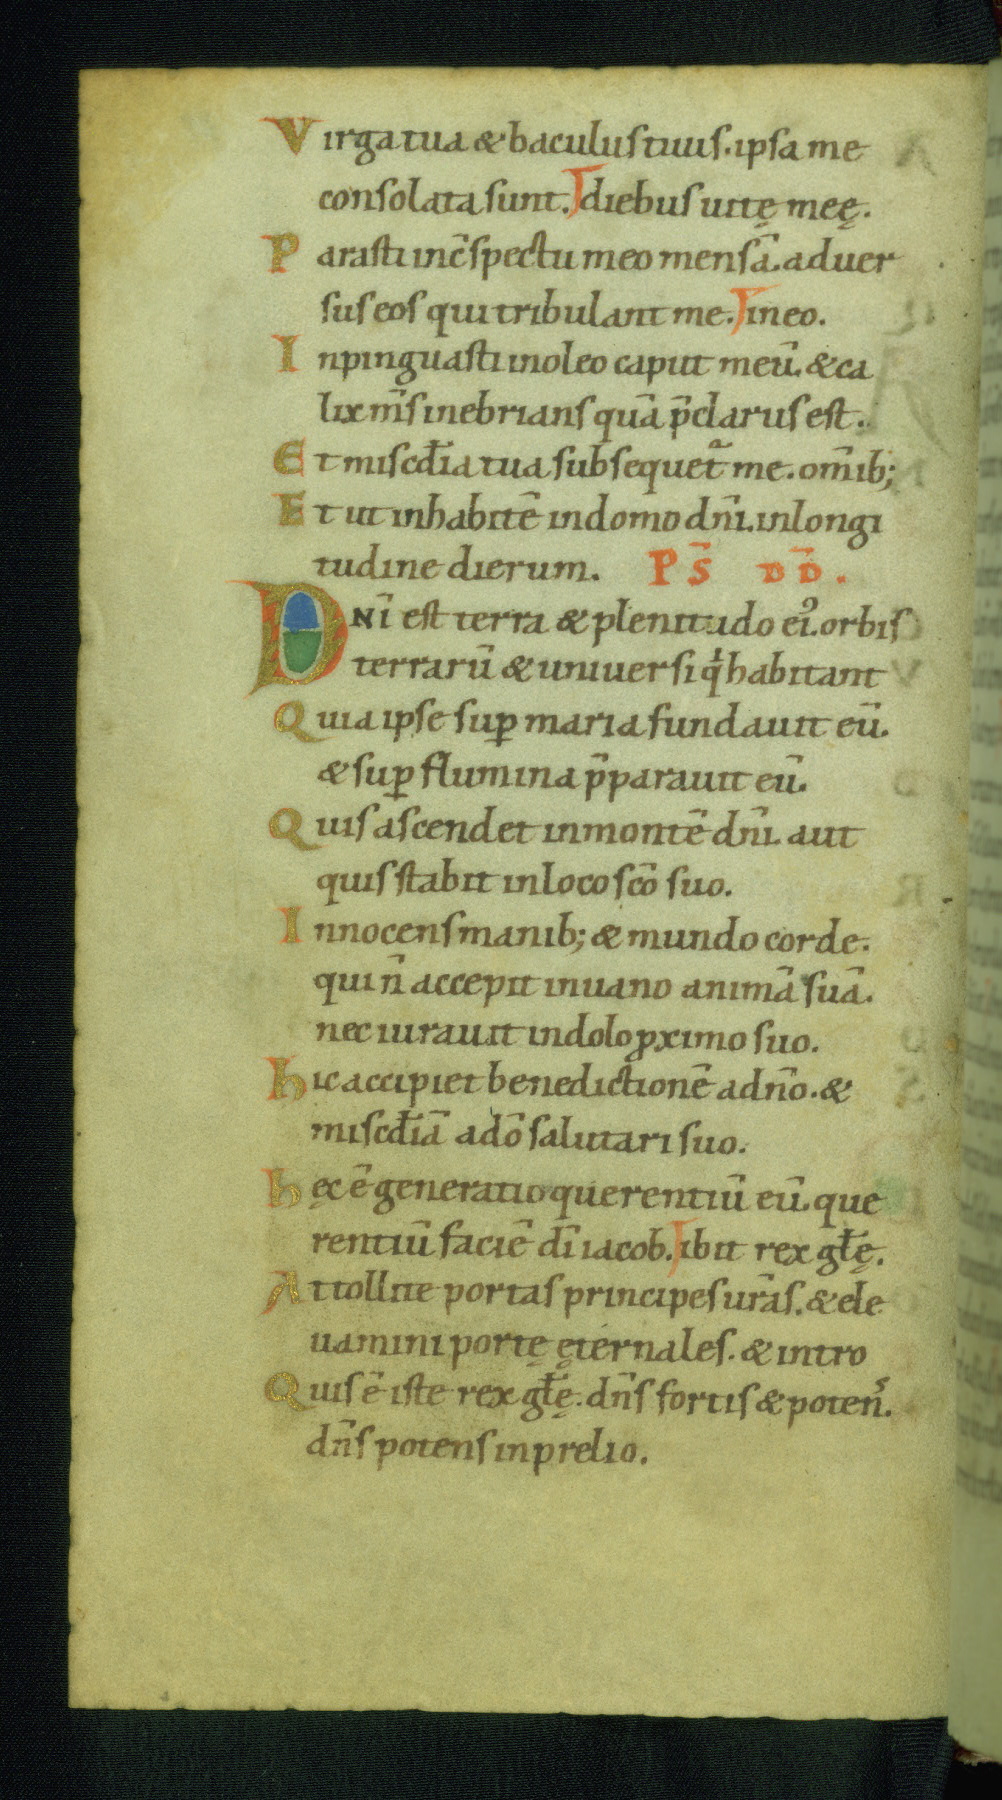 Virga tua & baculus tuus. ipsa me
consolata sunt. diebus uitę meę.
Parasti inc̄spectu meo mensā. aduer
sus eos qui tribulant me. in eo.
Inpinguasti in oleo caput meū. & ca
lix m̄s inebrians quā p̄clarus est.
Et misc̄dia tua subsequet᷒ me. om̄ib;
Et ut inhabitē in domo dn̄i. in longi
tudine dierum. PS̄ DD̄.
DNī est terra & plenitudo ei᾽. orbis
terrarū & uniuersi q̇ habitant
Quia ipse suꝑ maria fundauit eū.
& suꝑ flumina p̄parauit eū.
Quis ascendet in montē dn̄i. aut
quis stabit in loco sc̄o suo.
Innocens manib; & mundo corde.
qui n̄ accepit in uano animā suā.
nec iurauit in dolo ꝓximo suo.
hic accipiet benedictionē a dn̄o. &
misc̄diā a dō salutari suo.
hęc ē generatio querentiū eū. que
rentiū faciē dī iacob. ibit rex gl̄ę.
Attollite portas principes ur̄as. & ele
uamini portę ęternales. & intro
Quis ē iste rex gl̄ę. dn̄s fortis & potens.
dn̄s potens in prelio.